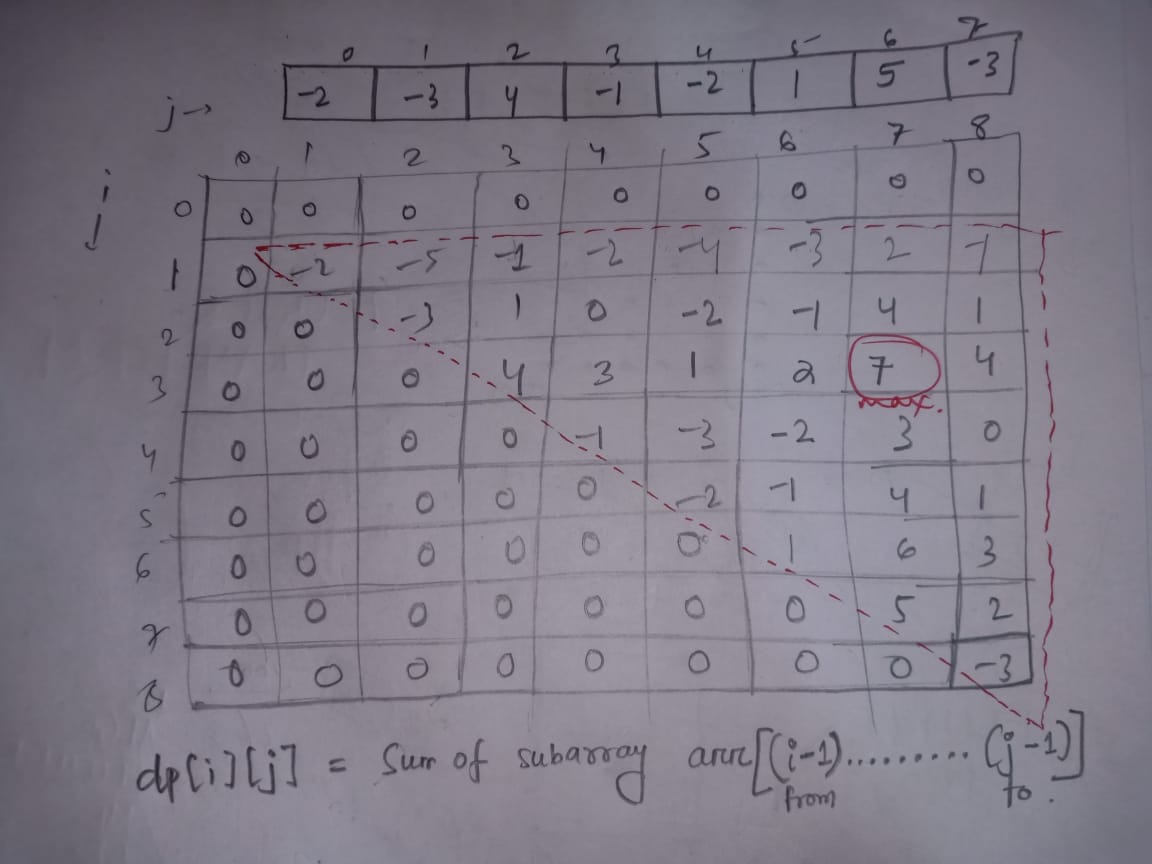 0 1 2 3 4 5 6 7
j→ -2 -3 4 -1 -2 1 5 -3
0 1 2 3 4 5 6 7 8
i
0 0 0 0 0 0 0 0 0 0
1 0 -2 -5 -1 -2 -4 -3 2 -1
2 0 0 -3 1 0 -2 -1 4 1
3 0 0 0 4 3 1 2 7 4
max.
4 0 0 0 0 -1 -3 -2 3 0
5 0 0 0 0 0 -2 -1 4 1
6 0 0 0 0 0 0 1 6 3
7 0 0 0 0 0 0 0 5 2
8 0 0 0 0 0 0 0 0 -3
dp[i][j] = Sum of subarray arr[(i-1).........(j-1)]
from to.